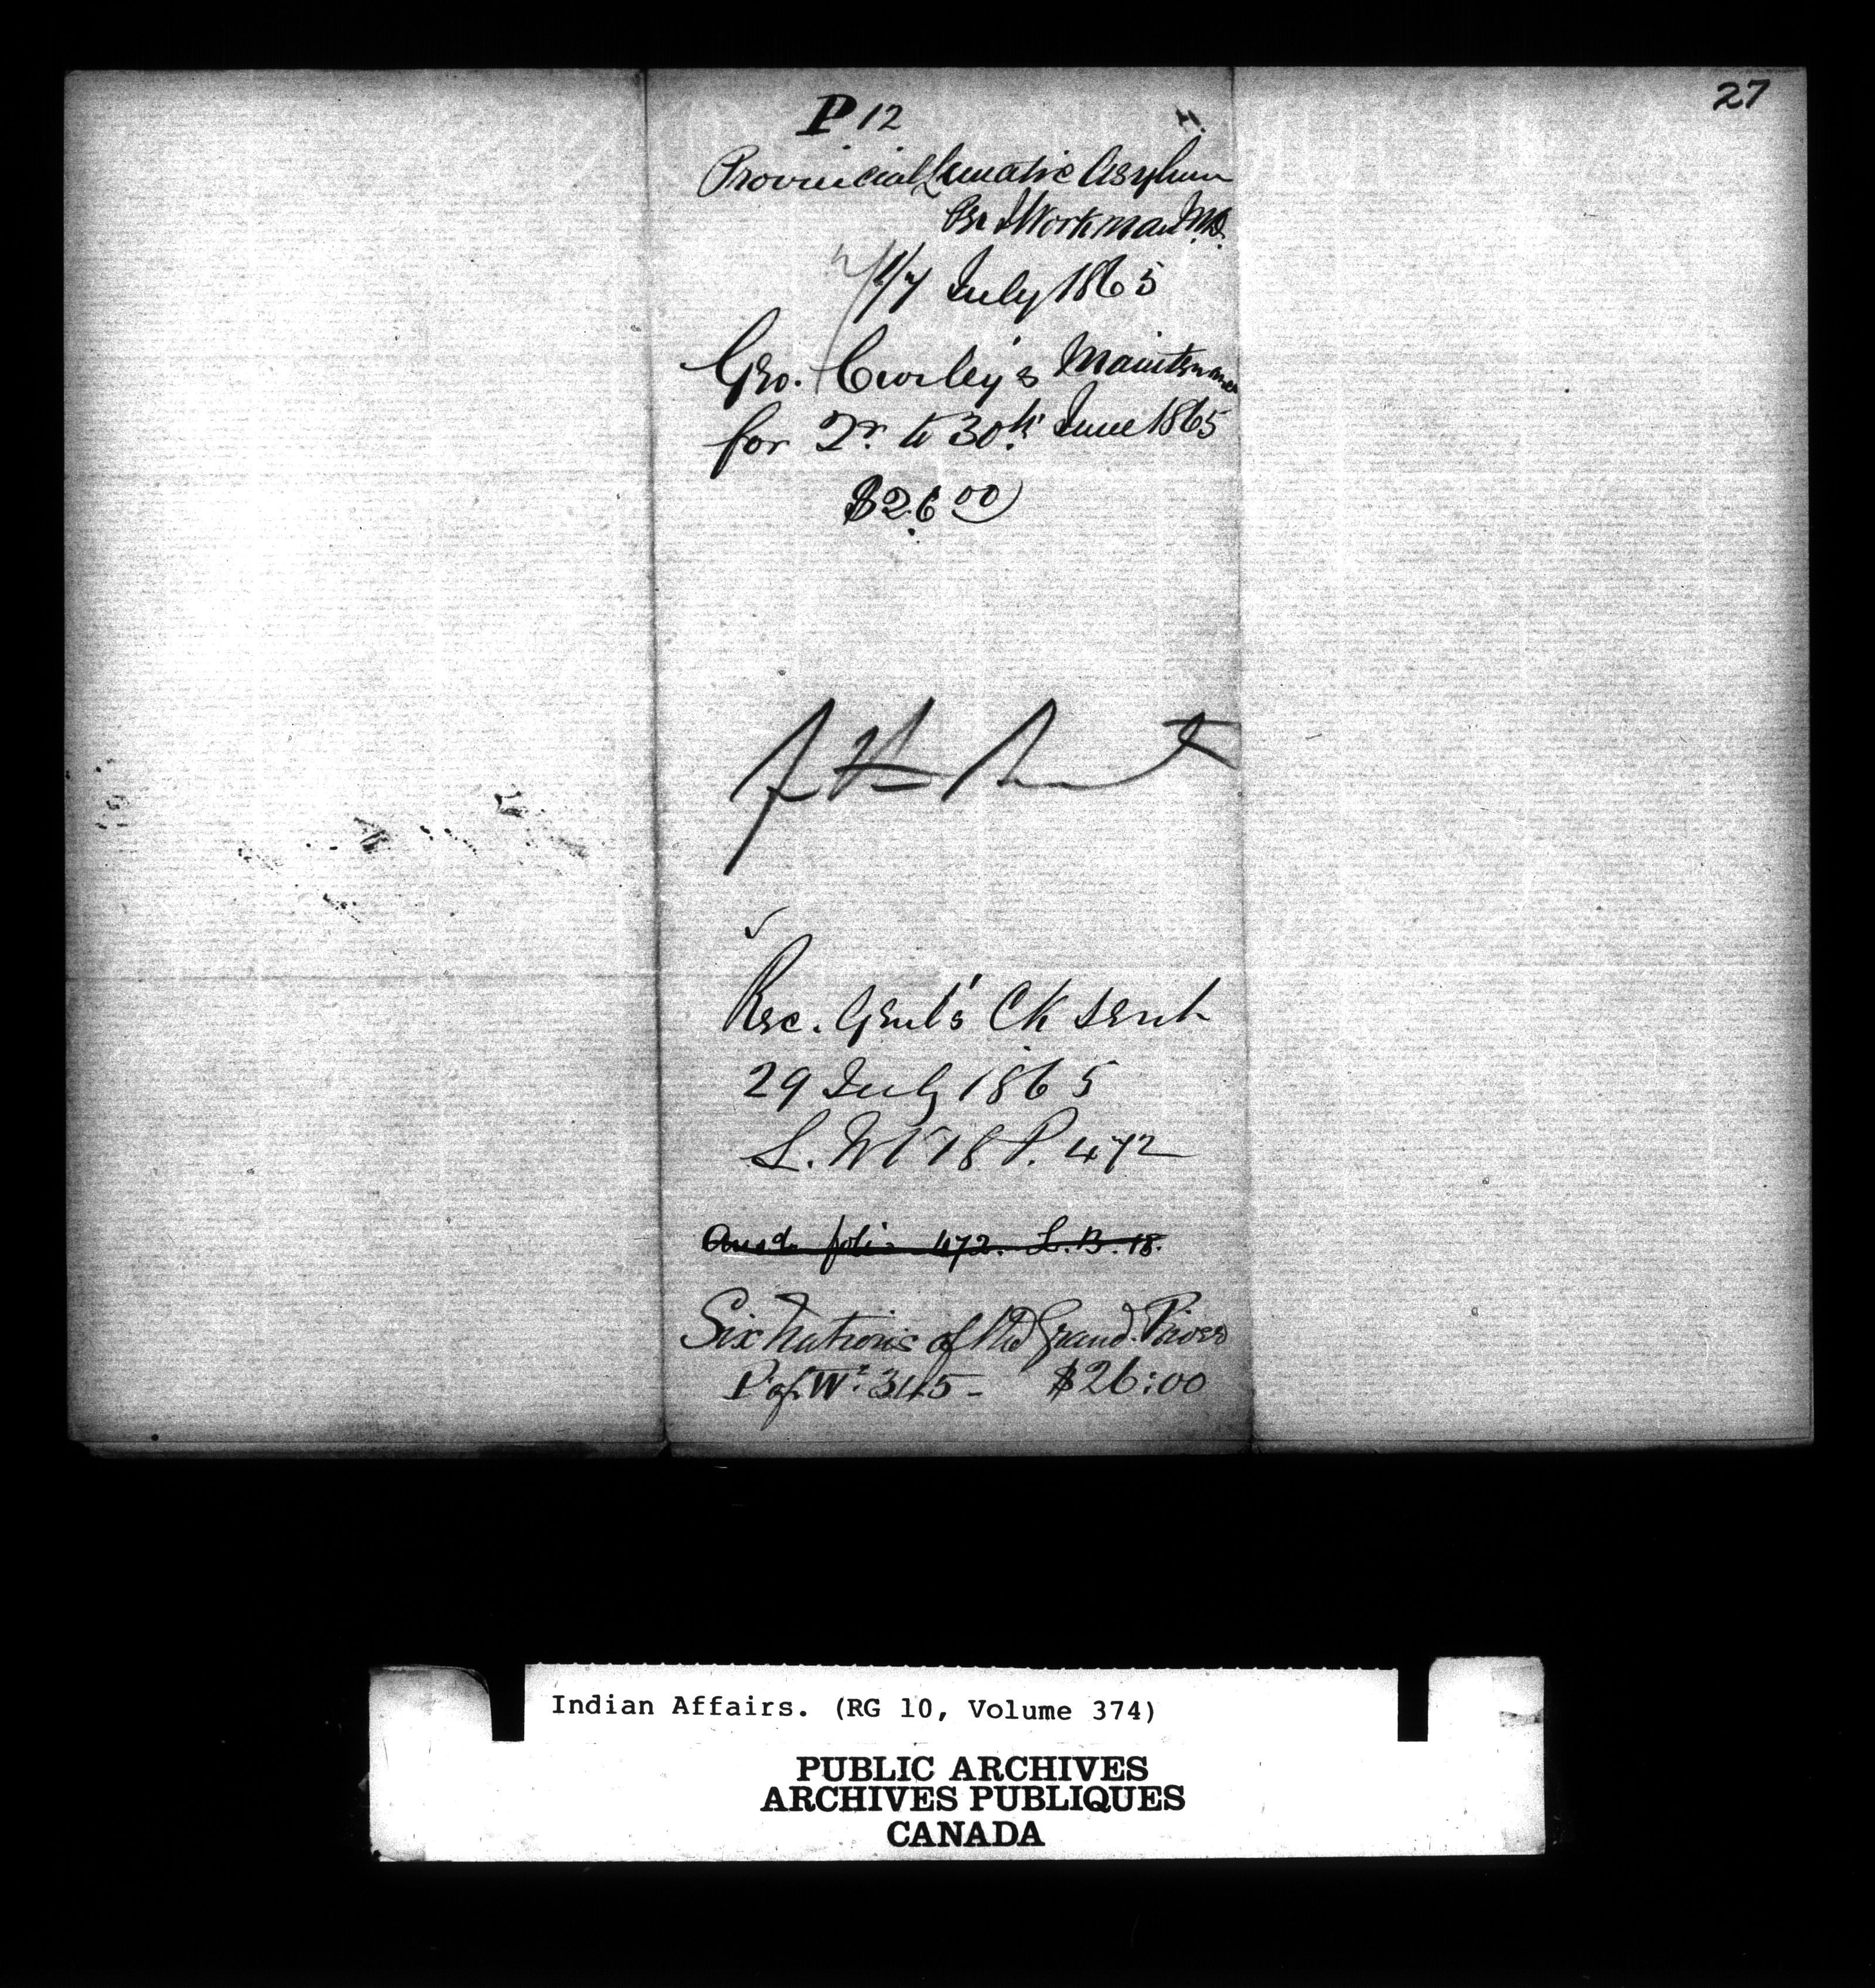 27
P 12
Provincial Lunatic Asylum
Per J Workman M.D.
July 1865
Geo. Curley's Maintenance
for Qr. to 30th June 1865
$26 00
Rec. Genl's Ck sent
29 July 1865
P. 472
Ansd. folio 472. L.B. 18.
Six Nations of the Grand River
345 - $26:00
Indian Affairs. (RG 10, Volume 374)
PUBLIC ARCHIVES
ARCHIVES PUBLIQUES
CANADA